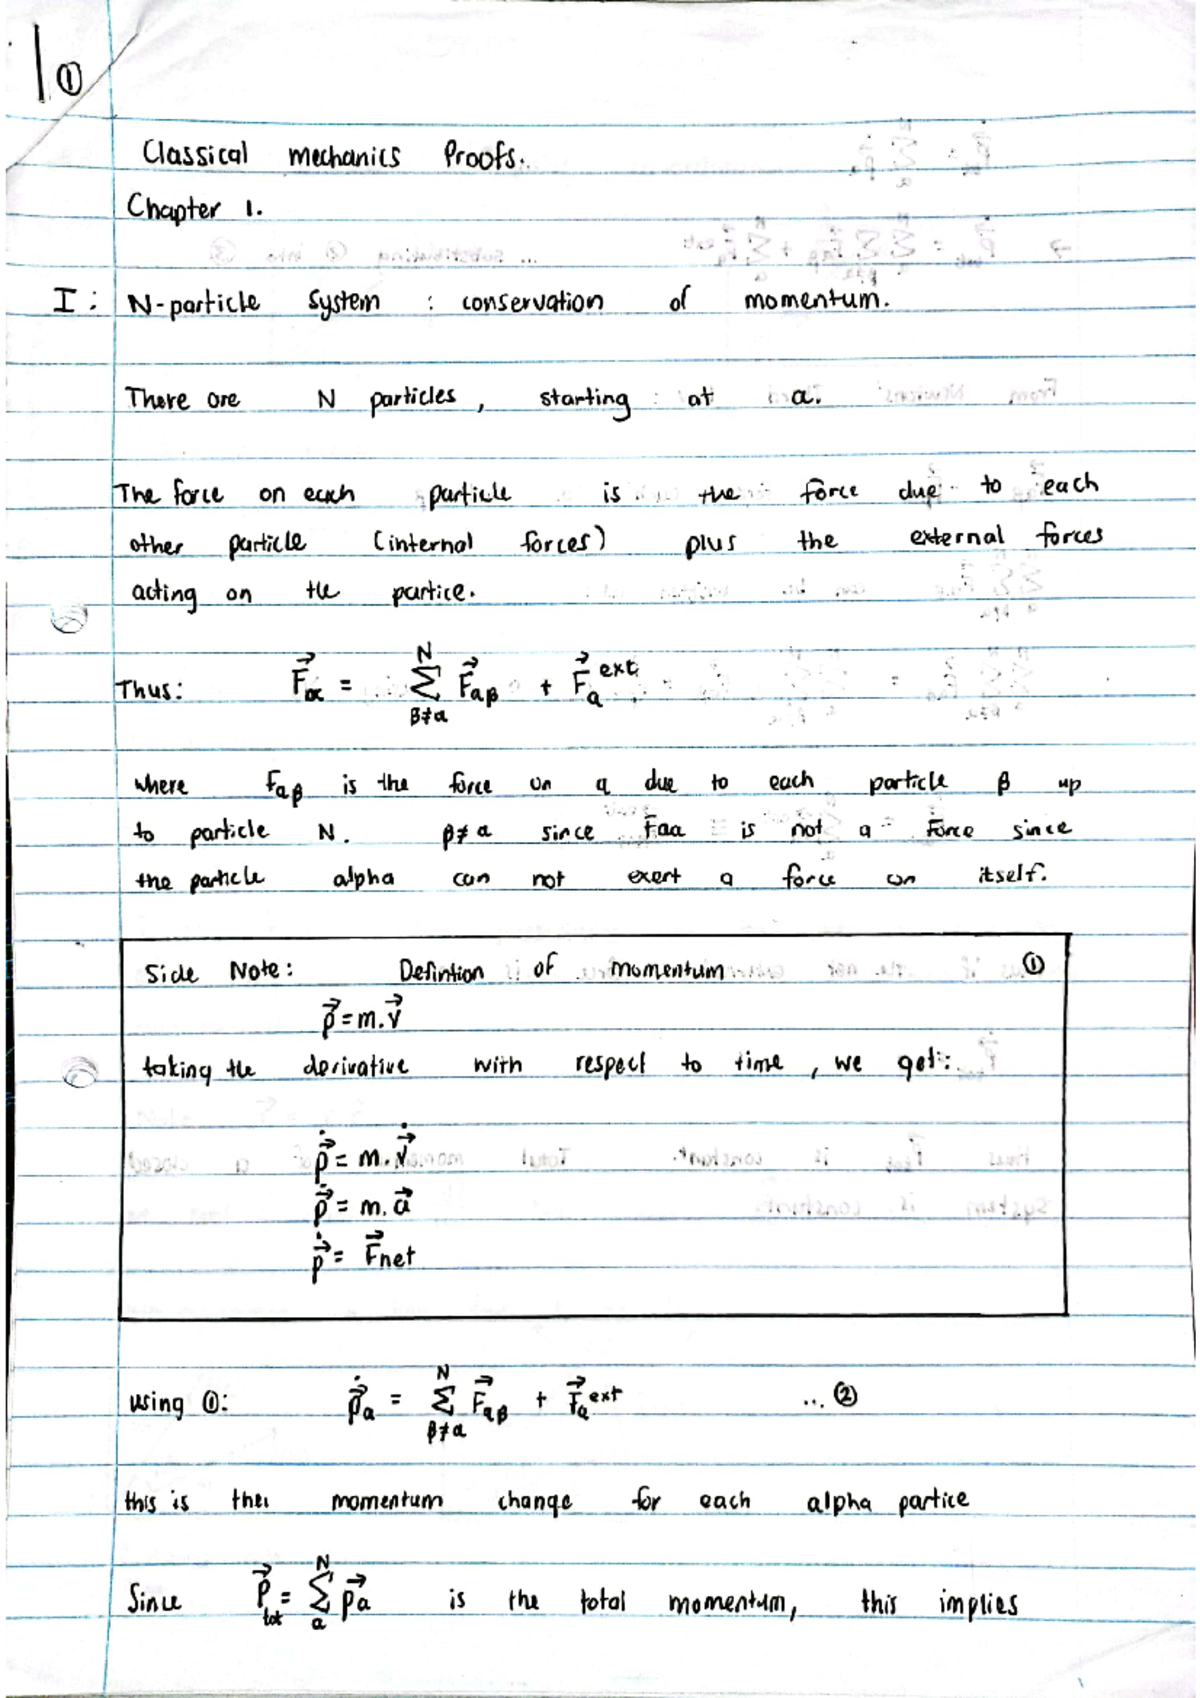 1 ①
Classical mechanics Proofs.
Chapter 1.
I: N-particle system : conservation of momentum.
There are N particles, starting at α.
The force on each particle is the force due to each
other particle (internal forces) plus the external forces
acting on the partice.
Thus: F⃗α = Σ_{β≠α}^{N} F⃗αβ + F⃗α^ext.
where Fαβ is the force on α due to each particle β up
to particle N. β≠α since Fαα is not a Force since
the particle alpha can not exert a force on itself.
Side Note: Defintion of momentum ①
p⃗ = m.v⃗
taking the derivative with respect to time, we get:
p⃗̇ = m.v⃗̇
p⃗̇ = m.a⃗
p⃗̇ = F⃗net
using ①: p⃗̇α = Σ_{β≠α}^{N} F⃗αβ + F⃗α^ext ... ②
this is the momentum change for each alpha partice
Since P⃗tot = Σ_{α}^{N} p⃗α is the total momentum, this implies